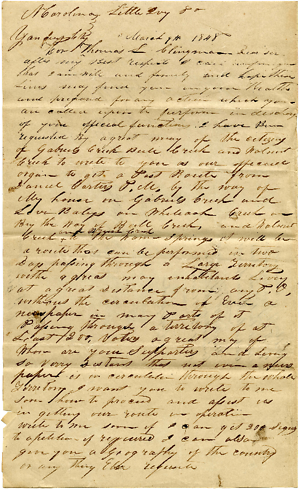 N Carolina Little Ivy P O
Yancy Cty March 9th 1848
Hon Thomas L Clingman Dear Sir
after my best respects I can inform you
that I am well and family and hope these
lines may find you in good health
and prepared for any action which you
are called upon to perform in
of your special function I have been
requested by a great many of the citizens
of Gabriels Creek Bull Creek and Walnut
Creek to write to you as our special
organ to get a Post Route from
Daniel Carters Ville by the way of
My house on Gabriels Creek and
on Creek
By the Way of Bull Creek and Walnut
Creek Springs it will be
a route that can be performed in two
Days passing through a Large Territory
with a great many inhabitants living
at a great distance from any P O
without the circulation of Even a
newspaper in many Parts of it
Passing through a territory of at
Least 300 Votes a great many of
Whom are your Supporters and being
so very Distant that not even a news
paper in circulation through the whole
Territory I want you to write to me
soon how to proceed and assist us
in getting our route in operation
write to me soon if I can get 300 signers
to a petition if required I can also
give you a Geography of the country
or any thing Else requested